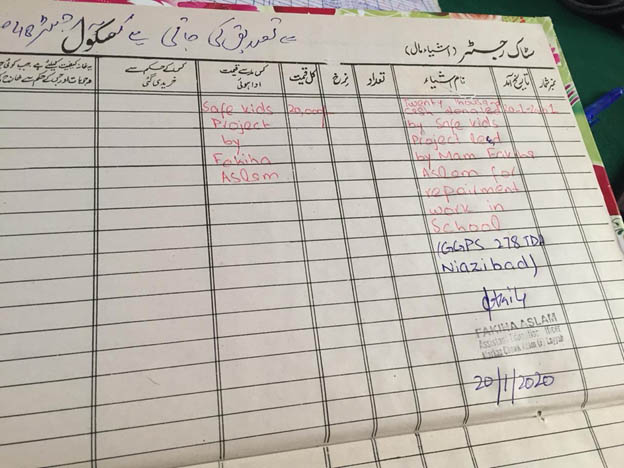 سٹاک رجسٹر (اشیاء مال)
سے تصدیق کی جاتی ہے
نمبر شمار
تاریخ آمد
نام اشیاء
تعداد
نرخ
کل قیمت
کس مد سے قیمت ادا ہوئی
کس کے حکم سے خریدی گئی
Twenty thousand
cash donated
by Safe kids
Project lead
by Mam Fakiha
Aslam for
repairment
work in
School
(GGPS 278 TDA
Niazibad)
20,000/
Safe kids
Project
by
Fakiha
Aslam
FAKIHA ASLAM
Assistant Education Officer
20/1/2020